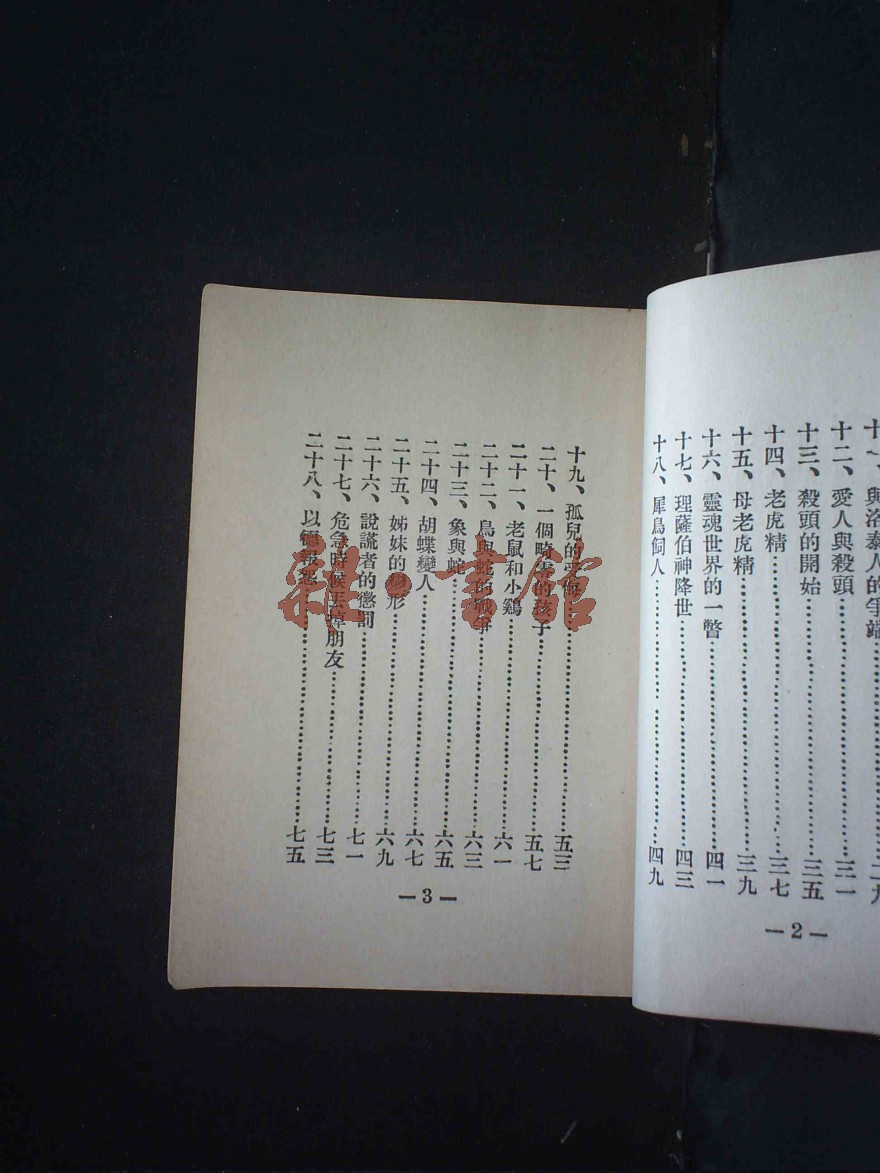 與洛泰人的爭端
十二、愛人與殺頭……三一
十三、殺頭的開始……三五
十四、老虎精……三七
十五、母老虎精……三九
十六、靈魂世界的一瞥……四一
十七、理薩伯神降世……四三
十八、犀鳥飼人……四九
—2—
十九、孤兒的……五三
二十、一個畸零的孩子……五七
二十一、老鼠和小鷄……六一
二十二、鳥與蛇的戰爭……六三
二十三、象與蛇……六五
二十四、胡蝶變人……六七
二十五、姊妹的變形……六九
二十六、說謊者的懲罰……七一
二十七、危急時候丟掉朋友……七三
二十八、以德報怨……七五
—3—
雜·書館